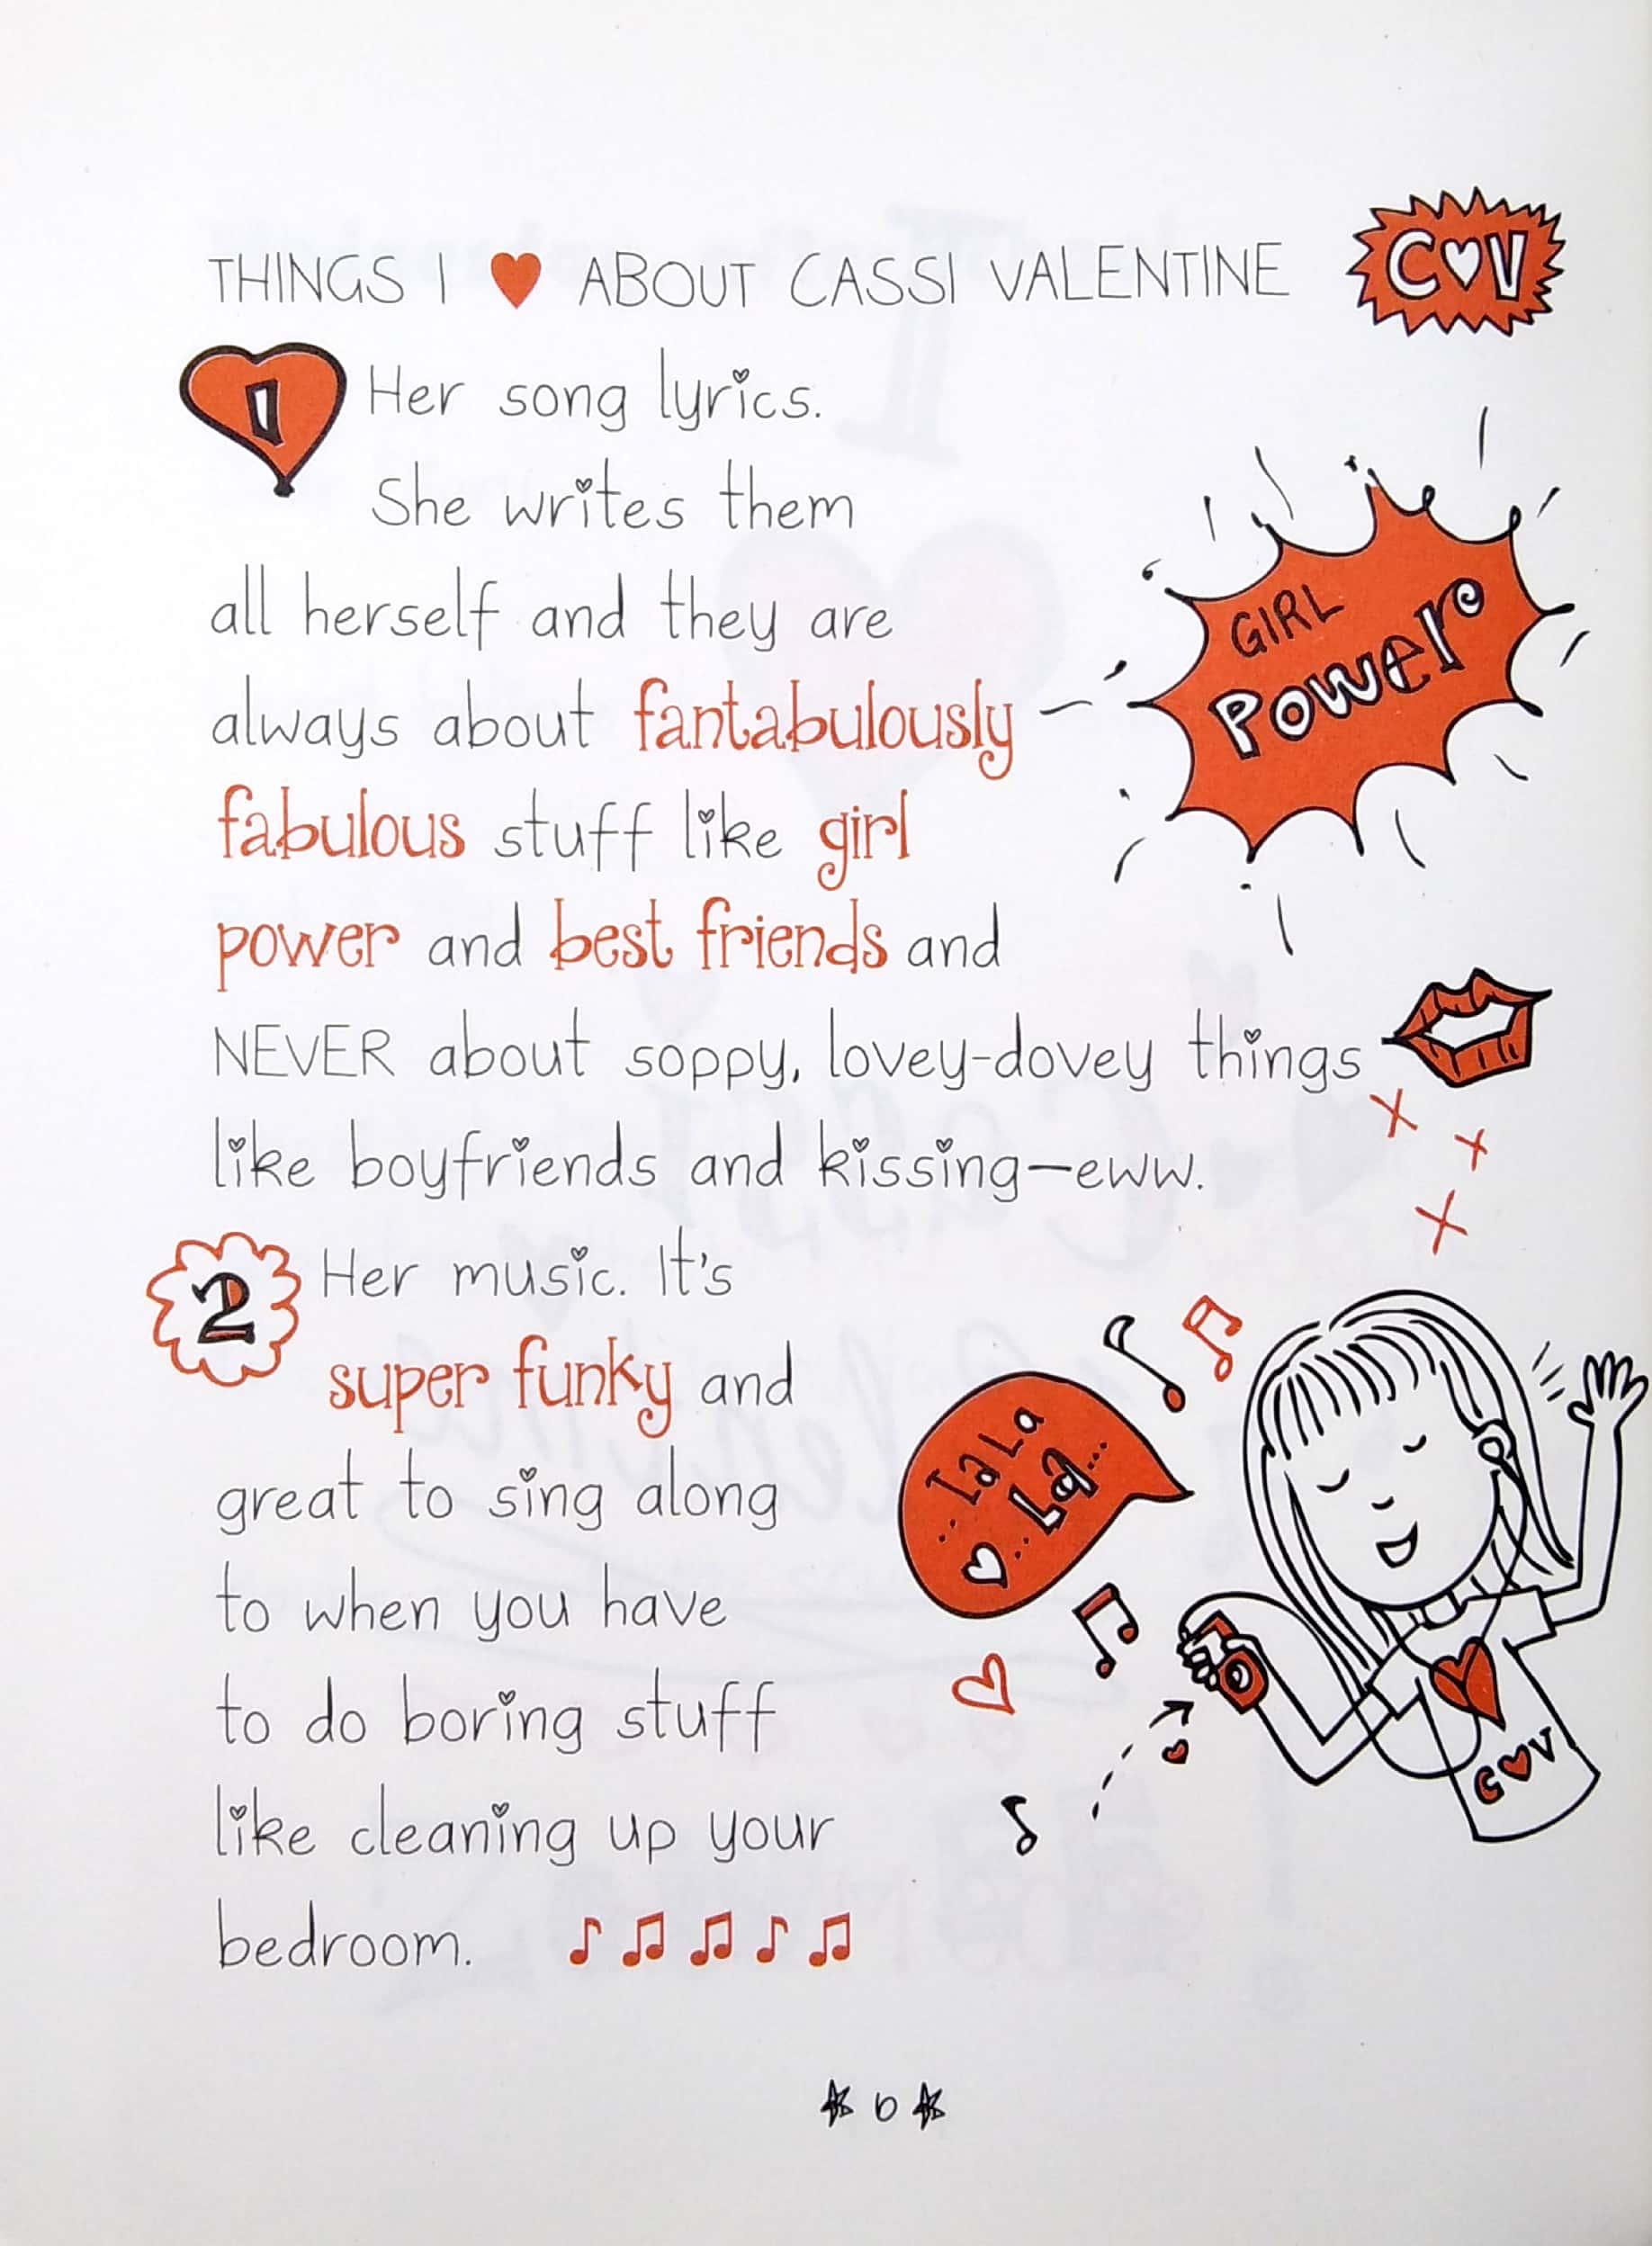 THINGS I ♥ ABOUT CASSI VALENTINE
C♥V
1 Her song lyrics.
She writes them
all herself and they are
always about fantabulously
fabulous stuff like girl
power and best friends and
NEVER about soppy, lovey-dovey things
like boyfriends and kissing—eww.
GIRL
POWER
X X
X
2 Her music. It's
super funky and
great to sing along
to when you have
to do boring stuff
like cleaning up your
bedroom. ♪♫♫♪♫
...la La
♥...La...
C♥V
6